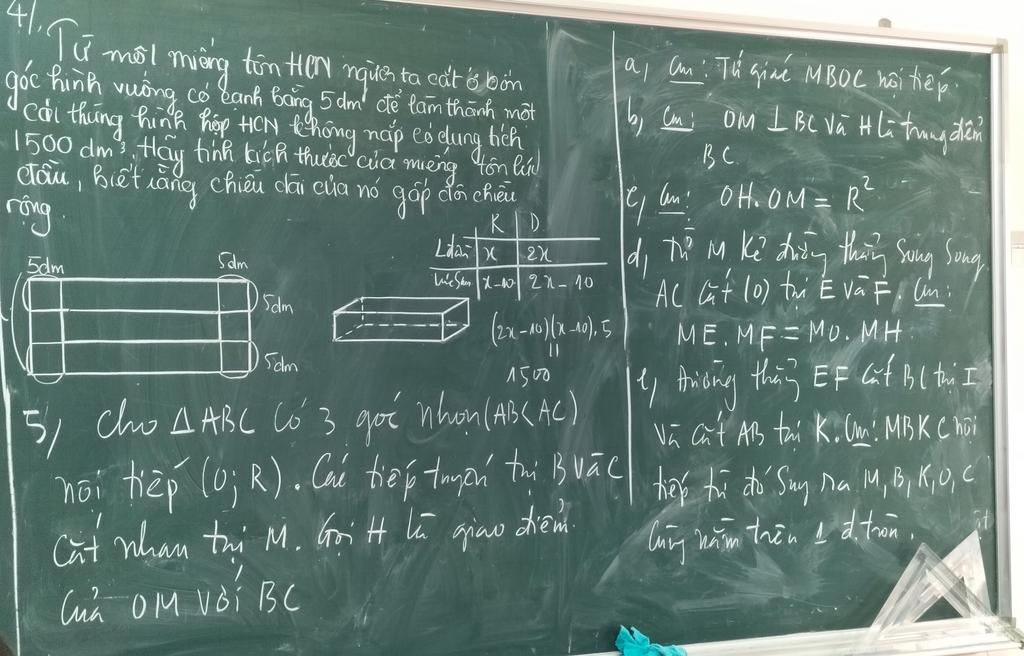 4/.
Từ một miếng tôn HCN người ta cắt ở bốn
góc hình vuông có cạnh bằng 5dm để làm thành một
cái thùng hình hộp HCN không nắp có dung tích
1500 dm³. Hãy tính kích thước của miếng tôn lúc
đầu, biết rằng chiều dài của nó gấp đôi chiều
rộng.
R D
Lđầu x 2x
Lúc sau x-10 2x-10
5dm 5dm
5dm
5dm
(2x-10)(x-10).5
=
1500
5/ Cho ΔABC có 3 góc nhọn (AB<AC)
nội tiếp (O; R). Các tiếp tuyến tại B và C
cắt nhau tại M. Gọi H là giao điểm
của OM với BC
a, Cm: Tứ giác MBOC nội tiếp.
b, Cm: OM ⊥ BC và H là trung điểm
BC.
c, Cm: OH.OM = R²
d, Từ M kẻ đường thẳng song song
AC cắt (O) tại E và F. Cm:
ME.MF = MO.MH
e, Đường thẳng EF cắt BC tại I
và cắt AB tại K. Cm: MBKC nội
tiếp từ đó suy ra M, B, K, O, C
cùng nằm trên 1 đ.tròn.